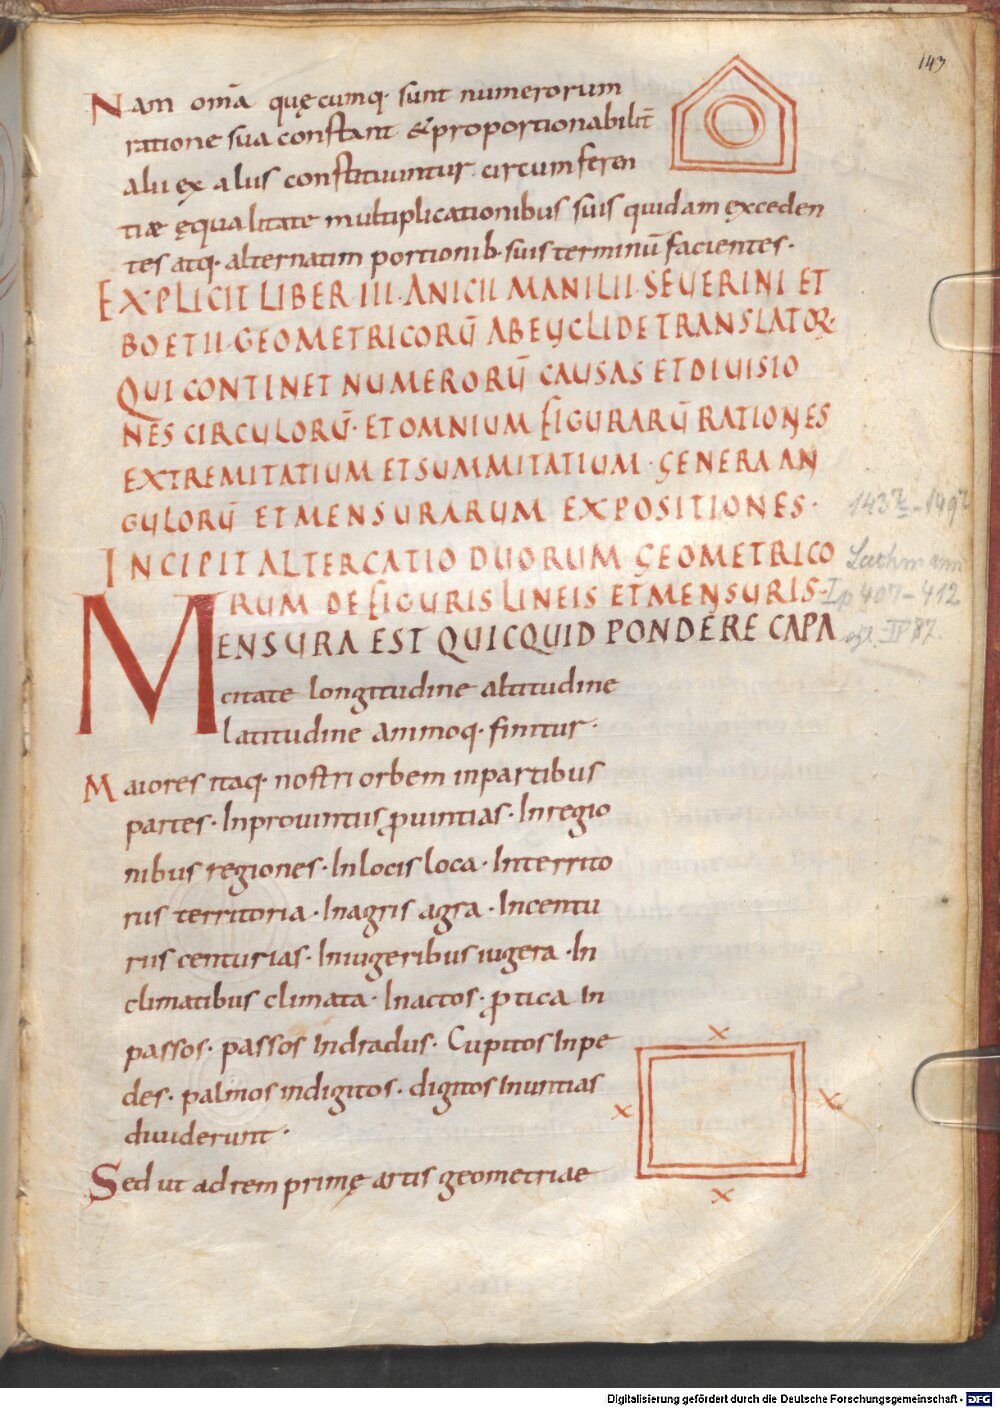 143
Nam om̄a quęcumq· sunt numerorum
ratione sua constant & proportionabilit̄
alii ex aliis constituuntur circumferen
tiæ ęqualitate multiplicationibus suis quidam exceden
tes atq· alternatim portionib· suis terminū facientes·
EXPLICIT LIBER III· ANICII MANILII· SEUERINI ET
BOETII· GEOMETRICORŪ AB EYCLIDE TRANSLATOR·
QUI CONTINET NUMERORŪ CAUSAS ET DIUISIO
NES CIRCULORŪ· ET OMNIUM FIGURARŪ RATIONES
EXTREMITATIUM ET SUMMITATIUM· GENERA AN
GULORŪ ET MENSURARUM EXPOSITIONES·
INCIPIT ALTERCATIO DUORUM GEOMETRICO
RUM DE FIGURIS LINEIS ET MENSURIS·
MENSURA EST QUICQUID PONDERE CAPA
citate longitudine altitudine
latitudine animoq· finitur·
Maiores itaq· nostri orbem in partibus
partes· In prouintiis p̱uintias· In regio
nibus regiones· In locis loca· In territo
riis territoria· In agris agra· In centu
riis centurias· In iugeribus iugera· In
climatibus climata· In actos· p̱tica In
passos· passos In dradus· Cupitos In pe
des· palmos in digitos· digitos In untias
diuiderunt·
Sed ut ad rem primę artis geometriae
x
x
x
x
143r–149v
Lachmann
I p 407–412
II 87.
Digitalisierung gefördert durch die Deutsche Forschungsgemeinschaft - DFG